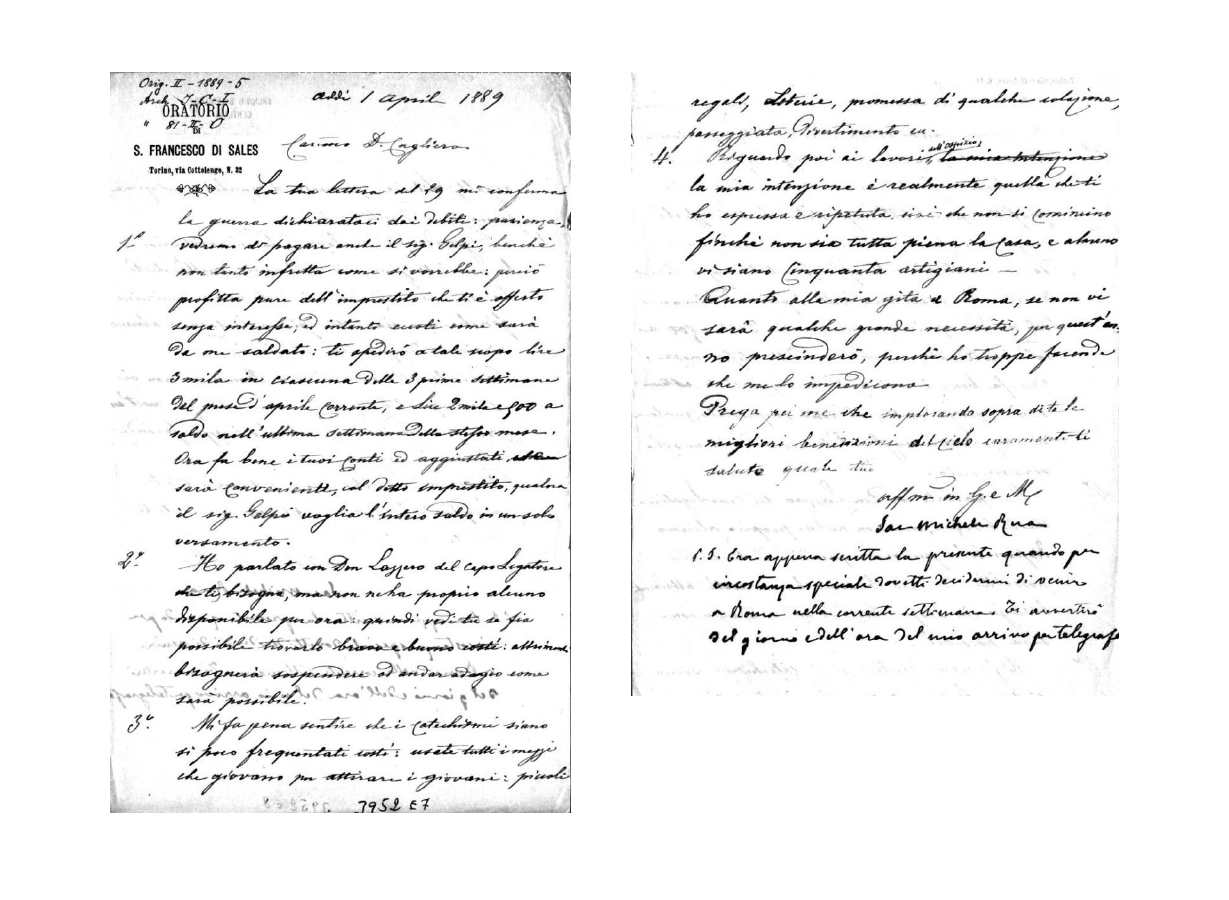 Orig. II - 1889 - 5
Arch. J-C-I
ORATORIO
" 81-II-O
DI
S. FRANCESCO DI SALES
Torino, via Cottolengo, N. 32
addì 1 April 1889
Car.mo D. Cagliero
La tua lettera del 29 mi conferma
la guerra dichiarataci dai debiti: pazienza,
1° vedremo di pagare anche il sig. Gelpi, benchè
non tanto infretta come si vorrebbe: perciò
profitta pure dell'imprestito che ti è offerto
senza interesse, ed intanto eccoti come sarà
da me saldato: ti spedirò a tale scopo lire
3 mila in ciascuna delle 3 prime settimane
del mese d'aprile corrente, e lire 2 mila e 500 a
saldo nell'ultima settimana dello stesso mese.
Ora fa bene i tuoi conti ed aggiustati,
sarà conveniente, col detto imprestito, qualora
il sig. Gelpi voglia l'intero saldo in un solo
versamento.
2° Ho parlato con Don Lazzero del Capo Legatore
che ti bisogna, ma non ne ha proprio alcuno
disponibile per ora: quindi vedi tu se fia
possibile trovarlo bravo e buono costì: altrimenti
bisognerà sospendere od andar adagio come
sarà possibile.
3° Mi fa pena sentire che i catechismi siano
sì poco frequentati costì: usate tutti i mezzi
che giovano per attirare i giovani: piccoli
3952 E7
regali, Lotterie, promessa di qualche colazione,
passeggiata, divertimento ec.
4. Riguardo poi ai lavori, dell'Ospizio, la mia intenzione
la mia intenzione è realmente quella che ti
ho espressa e ripetuta, cioè che non si comincino
finchè non sia tutta piena la Casa, e almeno
vi siano Cinquanta artigiani —
Quanto alla mia gita a Roma, se non vi
sarà qualche grande necessità, per quest'an-
no prescinderò, perchè ho troppe faccende
che me lo impediscono
Prega per me che implorando sopra di te le
migliori benedizioni del Cielo caramente ti
saluto quale tuo
aff.mo in G. e M.
Sac. Michele Rua
P.S. Era appena scritta la presente quando per
circostanza speciale dovetti decidermi di venir
a Roma nella corrente settimana. Ti avvertirò
del giorno e dell'ora del mio arrivo per telegrafo